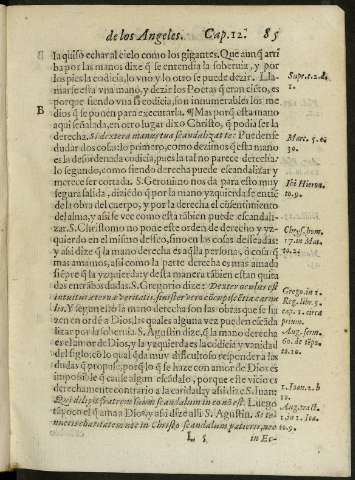 de los Angeles. Cap. 12. 85
la quiso echar al cielo como los gigantes. Que aunq̃ arri
ba por las manos dize q̃ se entendia la soberuia, y por
los pies la codicia, lo vno y lo otro se puede dezir. Lla-
marse esta vna mano, y dezir los Poetas q̃ eran ciẽto, es
porque siendo vna la codicia, son innumerables los me
dios q̃ se ponen para executarla. ¶ Mas porq̃ esta mano
aqui señalada, en otro lugar dixo Christo, q̃ podia ser la
derecha. Si dextera manus tua scandalizat te: Puedense
dudar dos cosas: lo primero, como dezimos q̃ esta mano
es la desordenada codicia, pues la tal no parece derecha:
lo segundo, como siendo derecha puede escandalizar y
merece ser cortada. S. Geronimo nos da para esto muy
segura salida, diziẽdo q̃ por la mano yzquierda se entiẽ
de la obra del cuerpo, y por la derecha el cõsentimiento
del alma, y assi se vee como esta tãbien puede escandali-
zar. S. Christomo no pone este orden de derecho y yz-
quierdo en el mismo desseo, sino en las cosas desseadas:
y assi dize q̃ la mano derecha es aq̃lla persona, o cosa q̃
mas amamos, assi como la parte derecha es mas amada
siẽpre q̃ la yzquierda: y desta manera tãbien estan quita
das entrãbas dudas. S. Gregorio dize: Dexter oculus est
intuitus æternæ veritatis, sinister vero cõcupiscẽtia carna
lis. Y segun esto la mano derecha son las obras que se ha
zen en ordẽ a Dios, las quales alguna vez pueden escãda
lizar por la soberuia. S. Agustin dize, q̃ la mano derecha
es el amor de Dios, y la yzquierda es la codicia y vanidad
del siglo: cõ lo qual q̃da muy dificultoso responder a las
dudas q̃ propuse, porq̃ lo q̃ se haze con amor de Dios es
impossible q̃ cause algun escãdalo, porque este vicio es
derechamente contrario a la caridad, y assi dize S. Iuan:
Qui diligit fratrem suum scandalum in eo nõ est. Luego
tãpoco el q̃ ama a Dios, y assi dize alli S. Agustin. Si te-
nueris charitatem nec in Christo scandalum patieris, nec
L 5 in Ec-
B
Supr. c. 2. §.
1.
Marc. 5. er
30.
Ibi Hieron.
to. 9.
Chrys. hom.
17. in Mat.
to. 2.
Grego. in 1.
Reg. lib. 5.
cap. 1. circa
prinm.
Aug. serm.
60. de tẽpo.
to. 10.
1. Ioan. 2. b
10.
Aug. tract.
1. in 1. Ioa.
to. 9.